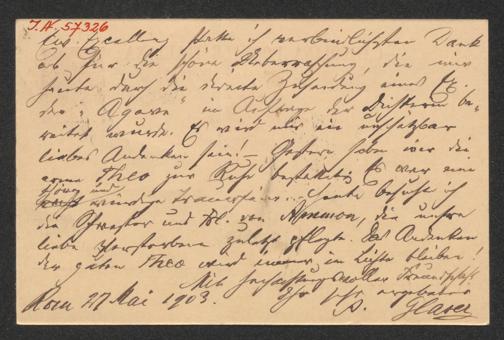 J.N. 57326
Ew. Excellenz statte ich verbindlichsten Dank
ab für die schöne Überraschung, die mir
heute durch die directe Zusendung eines Ex.
der "Agave" im Auftrage der Dichterin be-
reitet wurde. Es wird mir ein unschätzbar
liebes Andenken sein! – Gestern haben wir die
arme Theo zur Ruhe bestattet; es war eine
würdige Trauerfeier. Heute besuchte ich
die Schwester und Frl. von Ammon, die unsre
liebe Verstorbene zuletzt pflegte. Das Andenken
der guten Theo wird immer in
Mit hochachtungsvoller Freundschaft
Rom 27 Mai 1903. Ihr sehr ergebener
A. Glaser